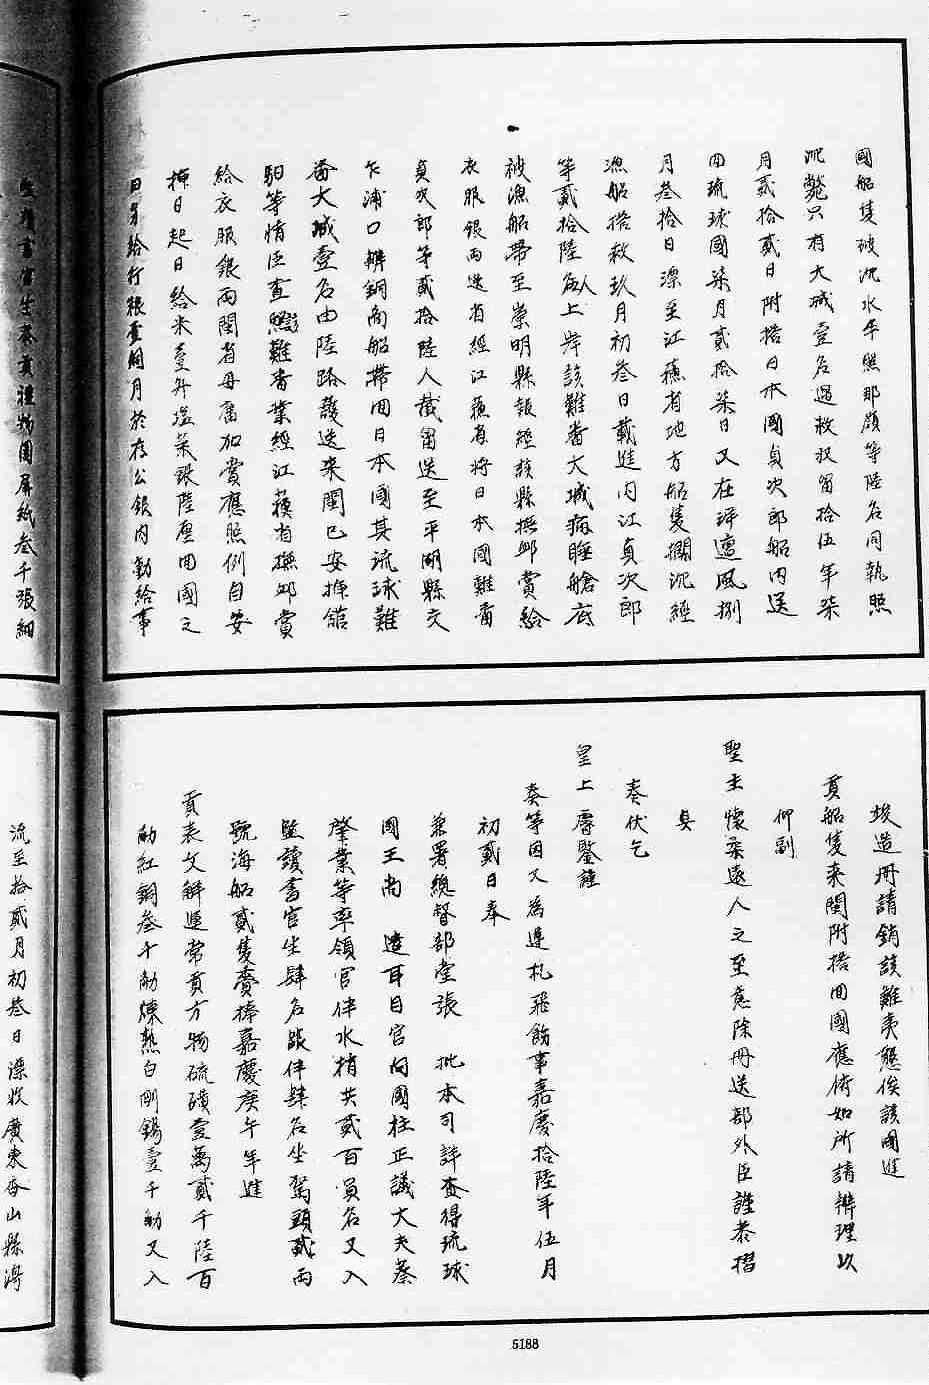 國船隻被沉水牟照那顏等陸名同執照
沉斃只有大城壹名遇救收留拾伍年柒
月貳拾貳日附搭日本國貞次郎船內送
回琉球國柒月貳拾柒日又在洋遭風捌
月叁拾日漂至江蘓省地方船隻擱沉經
漁船搭救玖月初叁日載進內江貞次郎
等貳拾陸名人上岸該難番大城病睡艙底
被漁船帶至崇明縣報經該縣撫卹賞給
衣服銀両送省經江蘓省將日本國難番
貞次郎等貳拾陸人截留送至平湖縣交
乍浦口辦銅商船帶回日本國其琉球難
番大城壹名由陸路護送來閩已安揷舘
驛等情臣查難番業經江蘓省撫卹賞
給衣服銀兩閩省毋庸加賞應照例自安
揷日起日給米壹升塩菜銀陸厘回國之
日另給行粮壹個月於存公銀內動給事
竣造冊請銷該難夷懇俟該國進
貢船隻來閩附搭回國應俯如所請辦理以
仰副
聖主懷柔遠人之至意除冊送部外臣謹恭摺
具
奏伏乞
皇上睿鑒謹
奏等因又為遵札飛飭事嘉慶拾陸年伍月
初貳日奉
兼署總督部堂張　批本司詳查得琉球
國王尚　遣耳目官向國柱正議大夫蔡
肇業等率領官伴水梢共貳百員名又入
監讀書官生肆名跟伴肆名坐駕頭貳兩
號海船貳隻賫捧嘉慶庚午年進
貢表文解運常貢方物硫磺壹萬貳千陸百
觔紅銅叁千觔煉熟白剛錫壹千觔又入
監讀書官生奏貢禮物圍屏紙叁千張細
流至拾貳月初叁日漂收廣東香山縣灣
5188